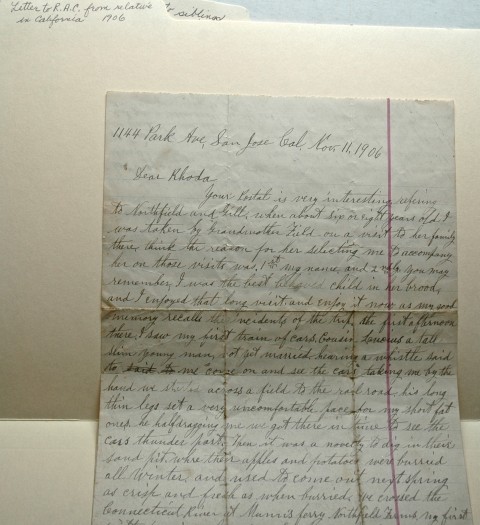 Letter to R.A.C. from relative to sibling
in California 1906
1144 Park Ave, San Jose Cal, Nov, 11, 1906
Dear Rhoda,
Your Postal is very interesting refering
to Northfield and Gill, when about six or eight years old I
was taken by Grandmother Field on a visit to her family
there, think the reason for her selecting me to accompany
her on those visits was, 1st my name, and 2nd you may
remember I was the best child in her brood,
and I enjoyed that long visit and enjoy it now as my good
memory recalls the incidents of the trip, the first afternoon
there, I saw my first train of cars. Cousin a tall
slim young man, not yet married, hearing a whistle said
to me come on and see the cars taking me by the
hand we across a field to the rail road, his long
thin legs set a very uncomfortable pace for my short fat
ones he half dragging me we got there in time to see the
cars thunder past. Then it was a novelty to dig in their
sand pit where the apples and potatoes were burried
all Winter, and used to come out next spring
as crisp and fresh as when burried, we crossed the
Connecticut River at Munns ferry, my first